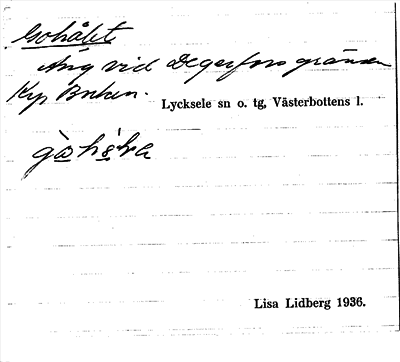 Gohålet
Äng vid Degerforsgränsen
Lycksele sn o. tg, Västerbottens l.
Lisa Lidberg 1936.